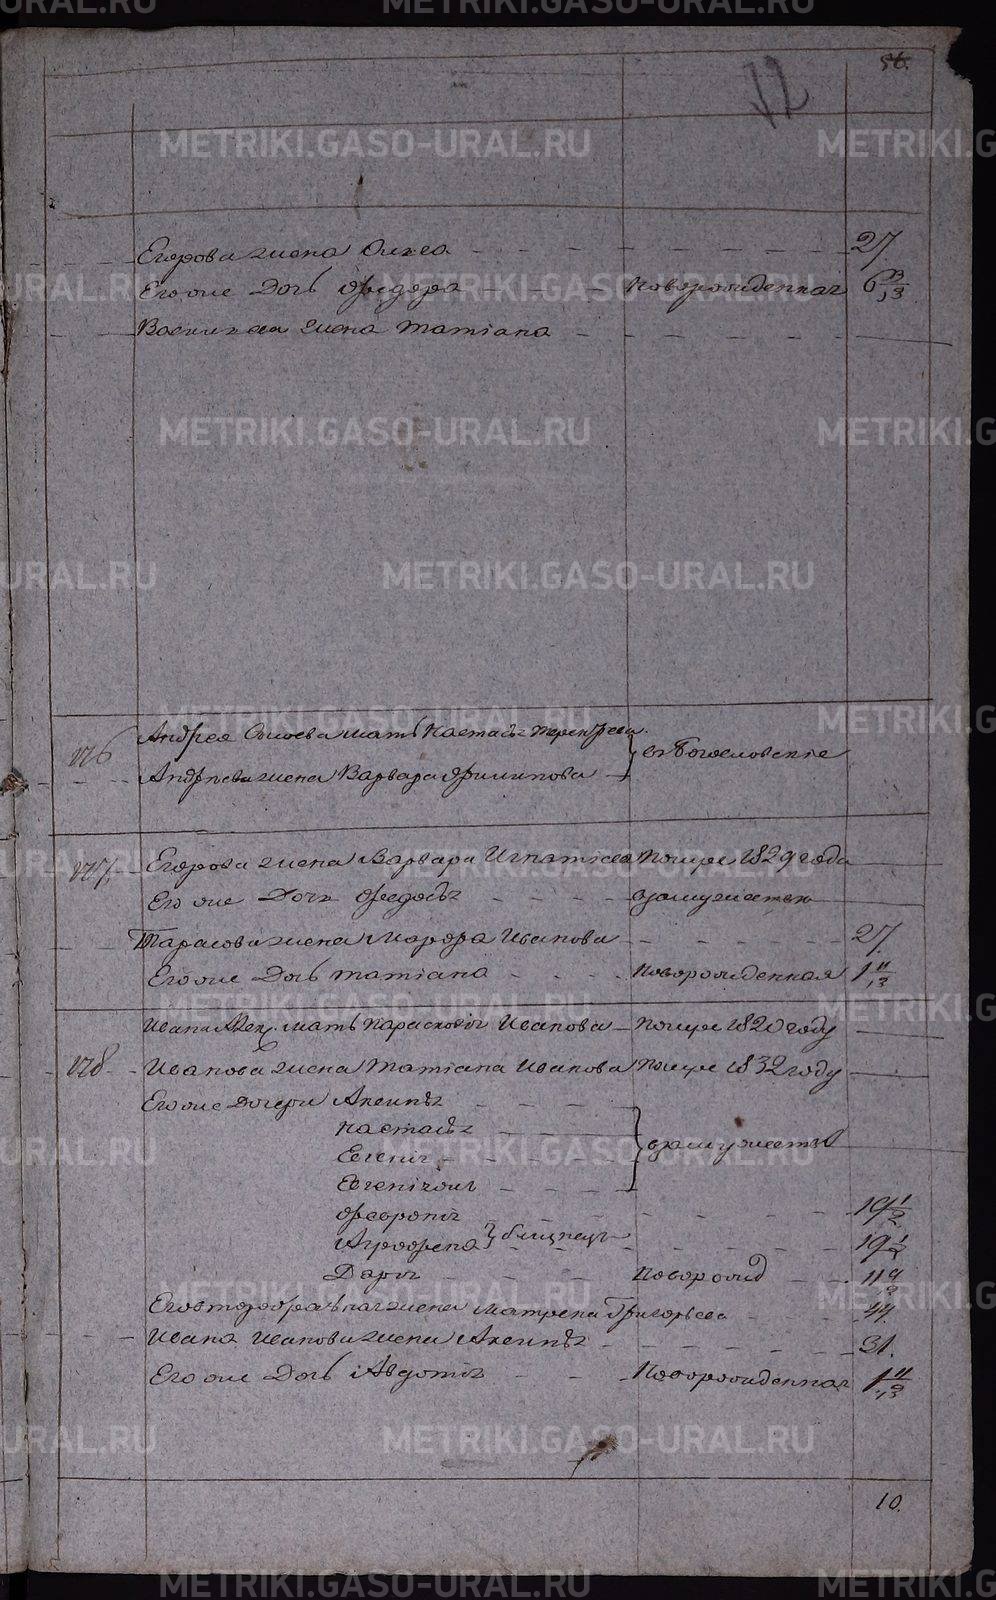 56.
Егорова жена Олга 27
Его же Дочь Федора новорожденная 6 3/13
Васильева жена Татiана
176 Андрея мать Настасья
Андреева жена Варвара Филипова въ Богословске
177. Егорова жена Варвара Игнатiева помре 1829 года
Его же Дочь Федосья взамужестве
Тарасова жена Марфа Иванова 27.
Его же Дочь татiана новорожденная 1 11/12
Ивана мать Парасковiя Иванова помре 1820 году
178 Иванова жена Татiана Иванова помре 1832 году
Его же дочери Аксинья
Настасья
Евгенiя взамужестве
Феврония 19 1/2
Аграфена близнецы 19 1/2
Дарья новорожд
Его второбрачная жена Матрена Григорьева 44.
Ивана Иванова жена Аксинья 31.
Его же Дочь Авдотья Новорожденная
10.
METRIKI.GASO-URAL.RU